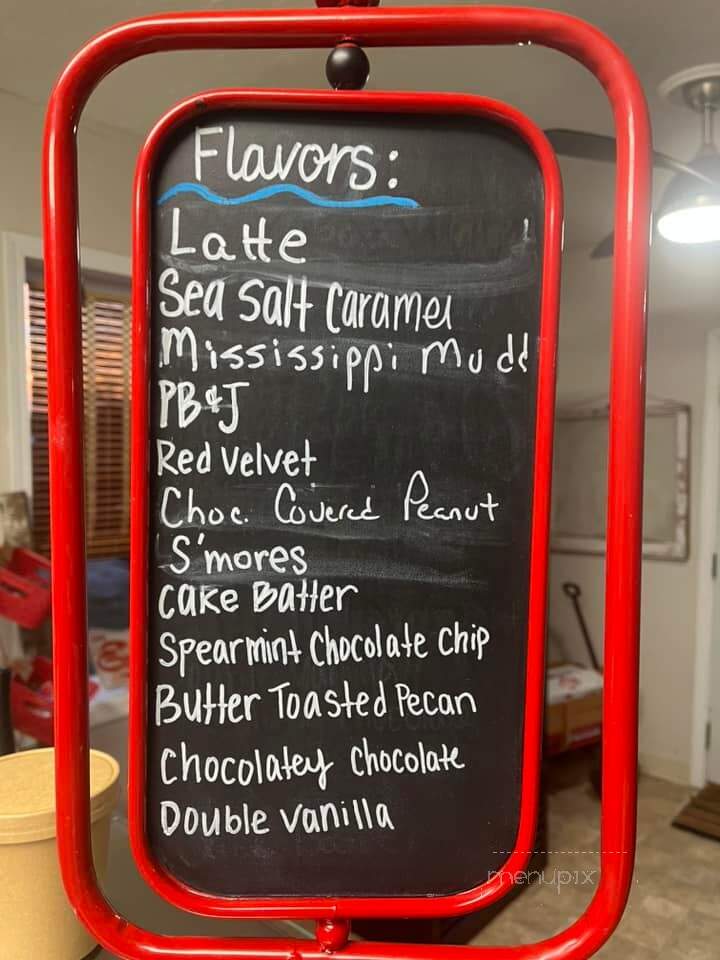 Flavors:
Latte
Sea Salt Caramel
Mississippi Mudd
PB&J
Red Velvet
Choc. Covered Peanut
S'mores
Cake Batter
Spearmint Chocolate Chip
Butter Toasted Pecan
Chocolatey Chocolate
Double Vanilla
menupix